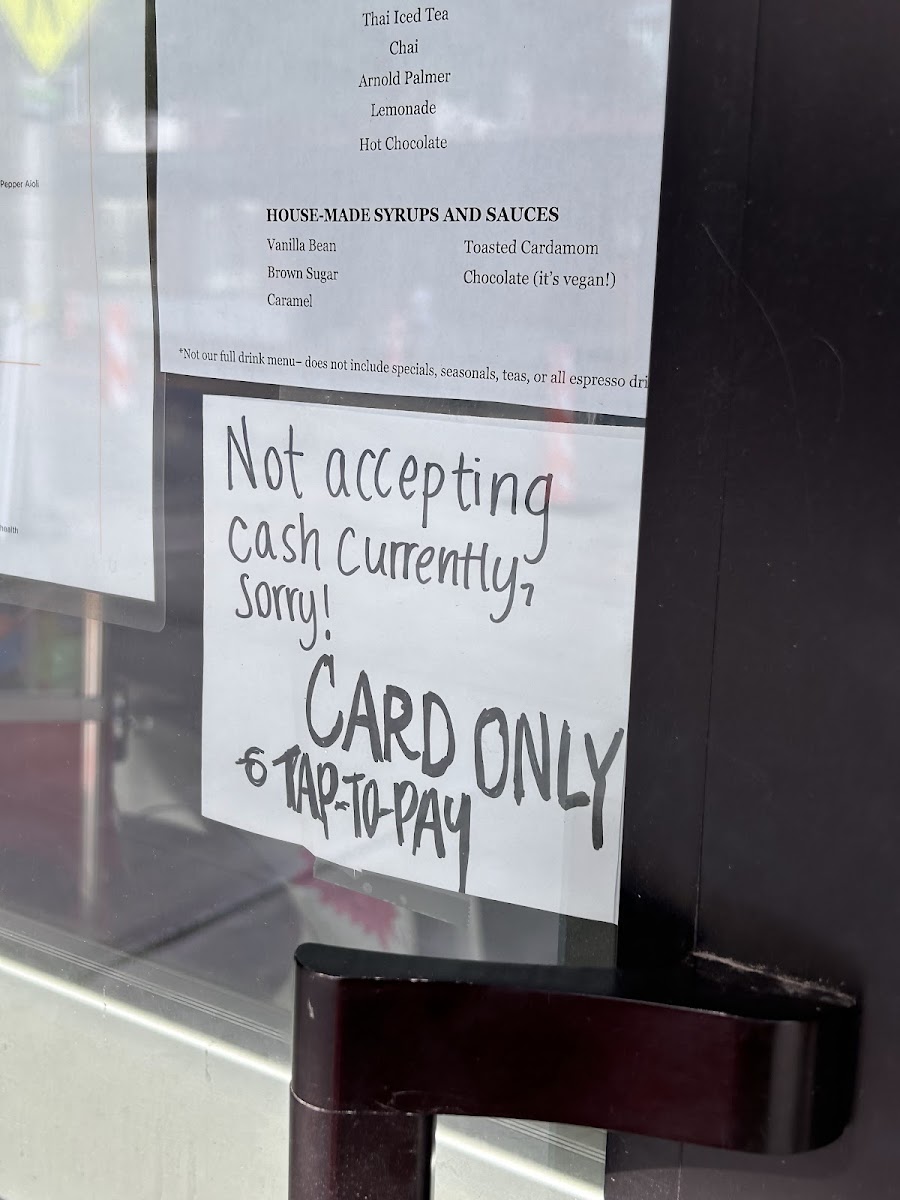 Thai Iced Tea
Chai
Arnold Palmer
Lemonade
Hot Chocolate
HOUSE-MADE SYRUPS AND SAUCES
Vanilla Bean
Brown Sugar
Caramel
Toasted Cardamom
Chocolate (it's vegan!)
*Not our full drink menu– does not include specials, seasonals, teas, or all espresso dri
Pepper Aioli
health
Not accepting
cash currently,
sorry!
CARD ONLY
& TAP-TO-PAY